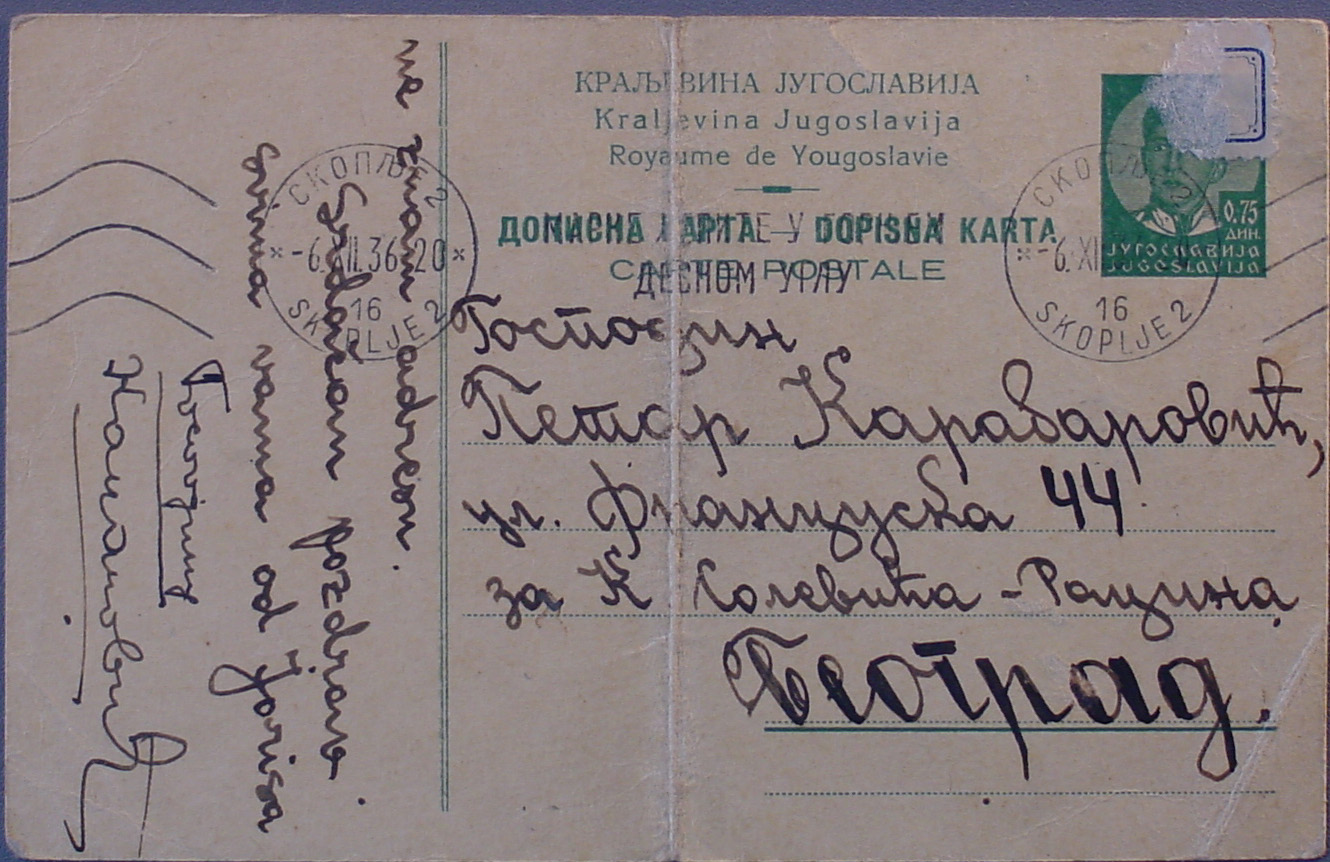 КРАЉЕВИНА ЈУГОСЛАВИЈА
Kraljevina Jugoslavija
Royaume de Yougoslavie
ДОПИСНА КАРТА — DOPISNA KARTA
CARTE POSTALE
ДЕСНОМ УГЛУ
0.75
ДИН.
ЈУГОСЛАВИЈА
JUGOSLAVIJA
СКОПЉЕ 2
-6.XII.36-20
16
SKOPLJE 2
СКОПЉЕ 2
-6.XI
16
SKOPLJE 2
Господин
Петар Караваровић,
ул. Француска 44
за К Солевића - Рацина
Београд.
ne znam adresu.
Srdačan pozdrav
svima vama od Jorisa